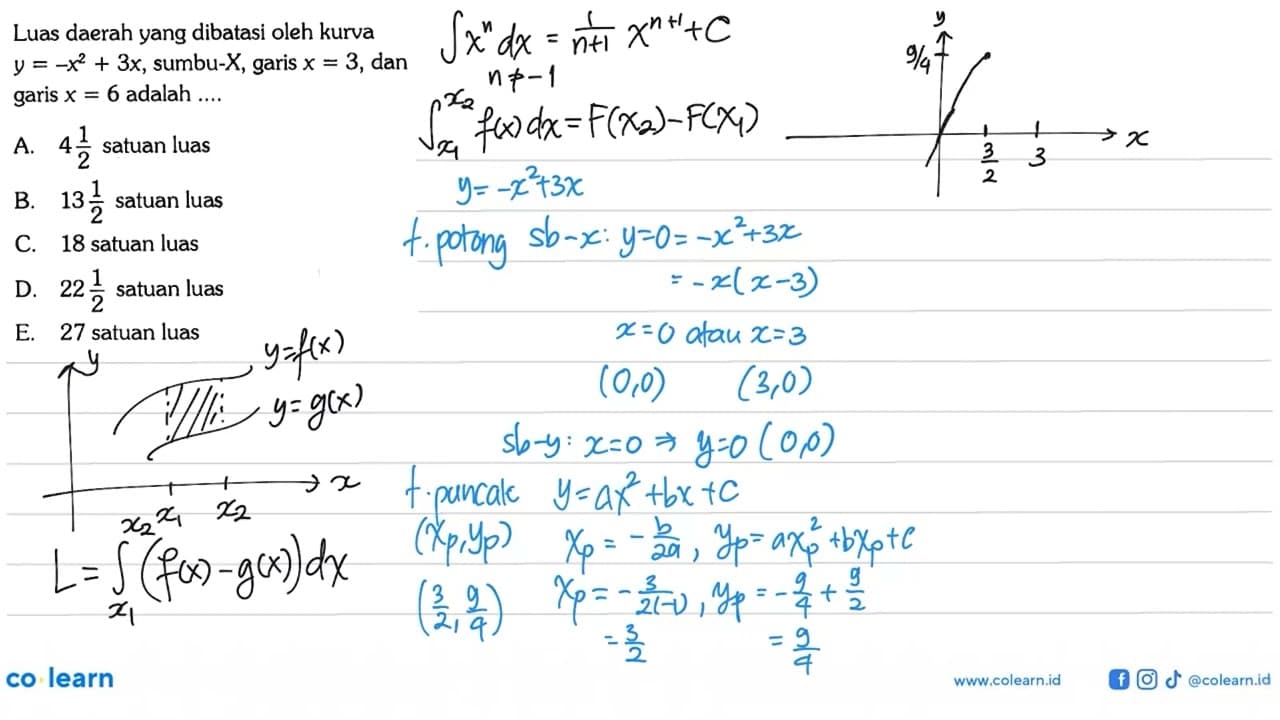 Luas daerah yang dibatasi oleh kurva
y = –x² + 3x, sumbu-X, garis x = 3, dan
garis x = 6 adalah ....
A. 4 1/2 satuan luas
B. 13 1/2 satuan luas
C. 18 satuan luas
D. 22 1/2 satuan luas
E. 27 satuan luas
y
y=f(x)
y=g(x)
x
x₂ x₁ x₂
L = ∫ (f(x) – g(x)) dx
x₁
∫xⁿ dx = 1/(n+1) xⁿ⁺¹ + C
n ≠ –1
∫ₓ₁ˣ² f(x) dx = F(x₂) – F(x₁)
y = –x² + 3x
t. potong sb-x: y=0 = –x² + 3x
= –x(x–3)
x=0 atau x=3
(0,0) (3,0)
sb-y: x=0 ⇒ y=0 (0,0)
t. puncak y = ax² + bx + c
(xp, yp) xp = –b/2a, yp = axp² + bxp + c
(3/2, 9/4) xp = –3/2(–1), yp = –9/4 + 9/2
= 3/2 = 9/4
y
9/4
x
3/2 3
co learn
www.colearn.id @colearn.id